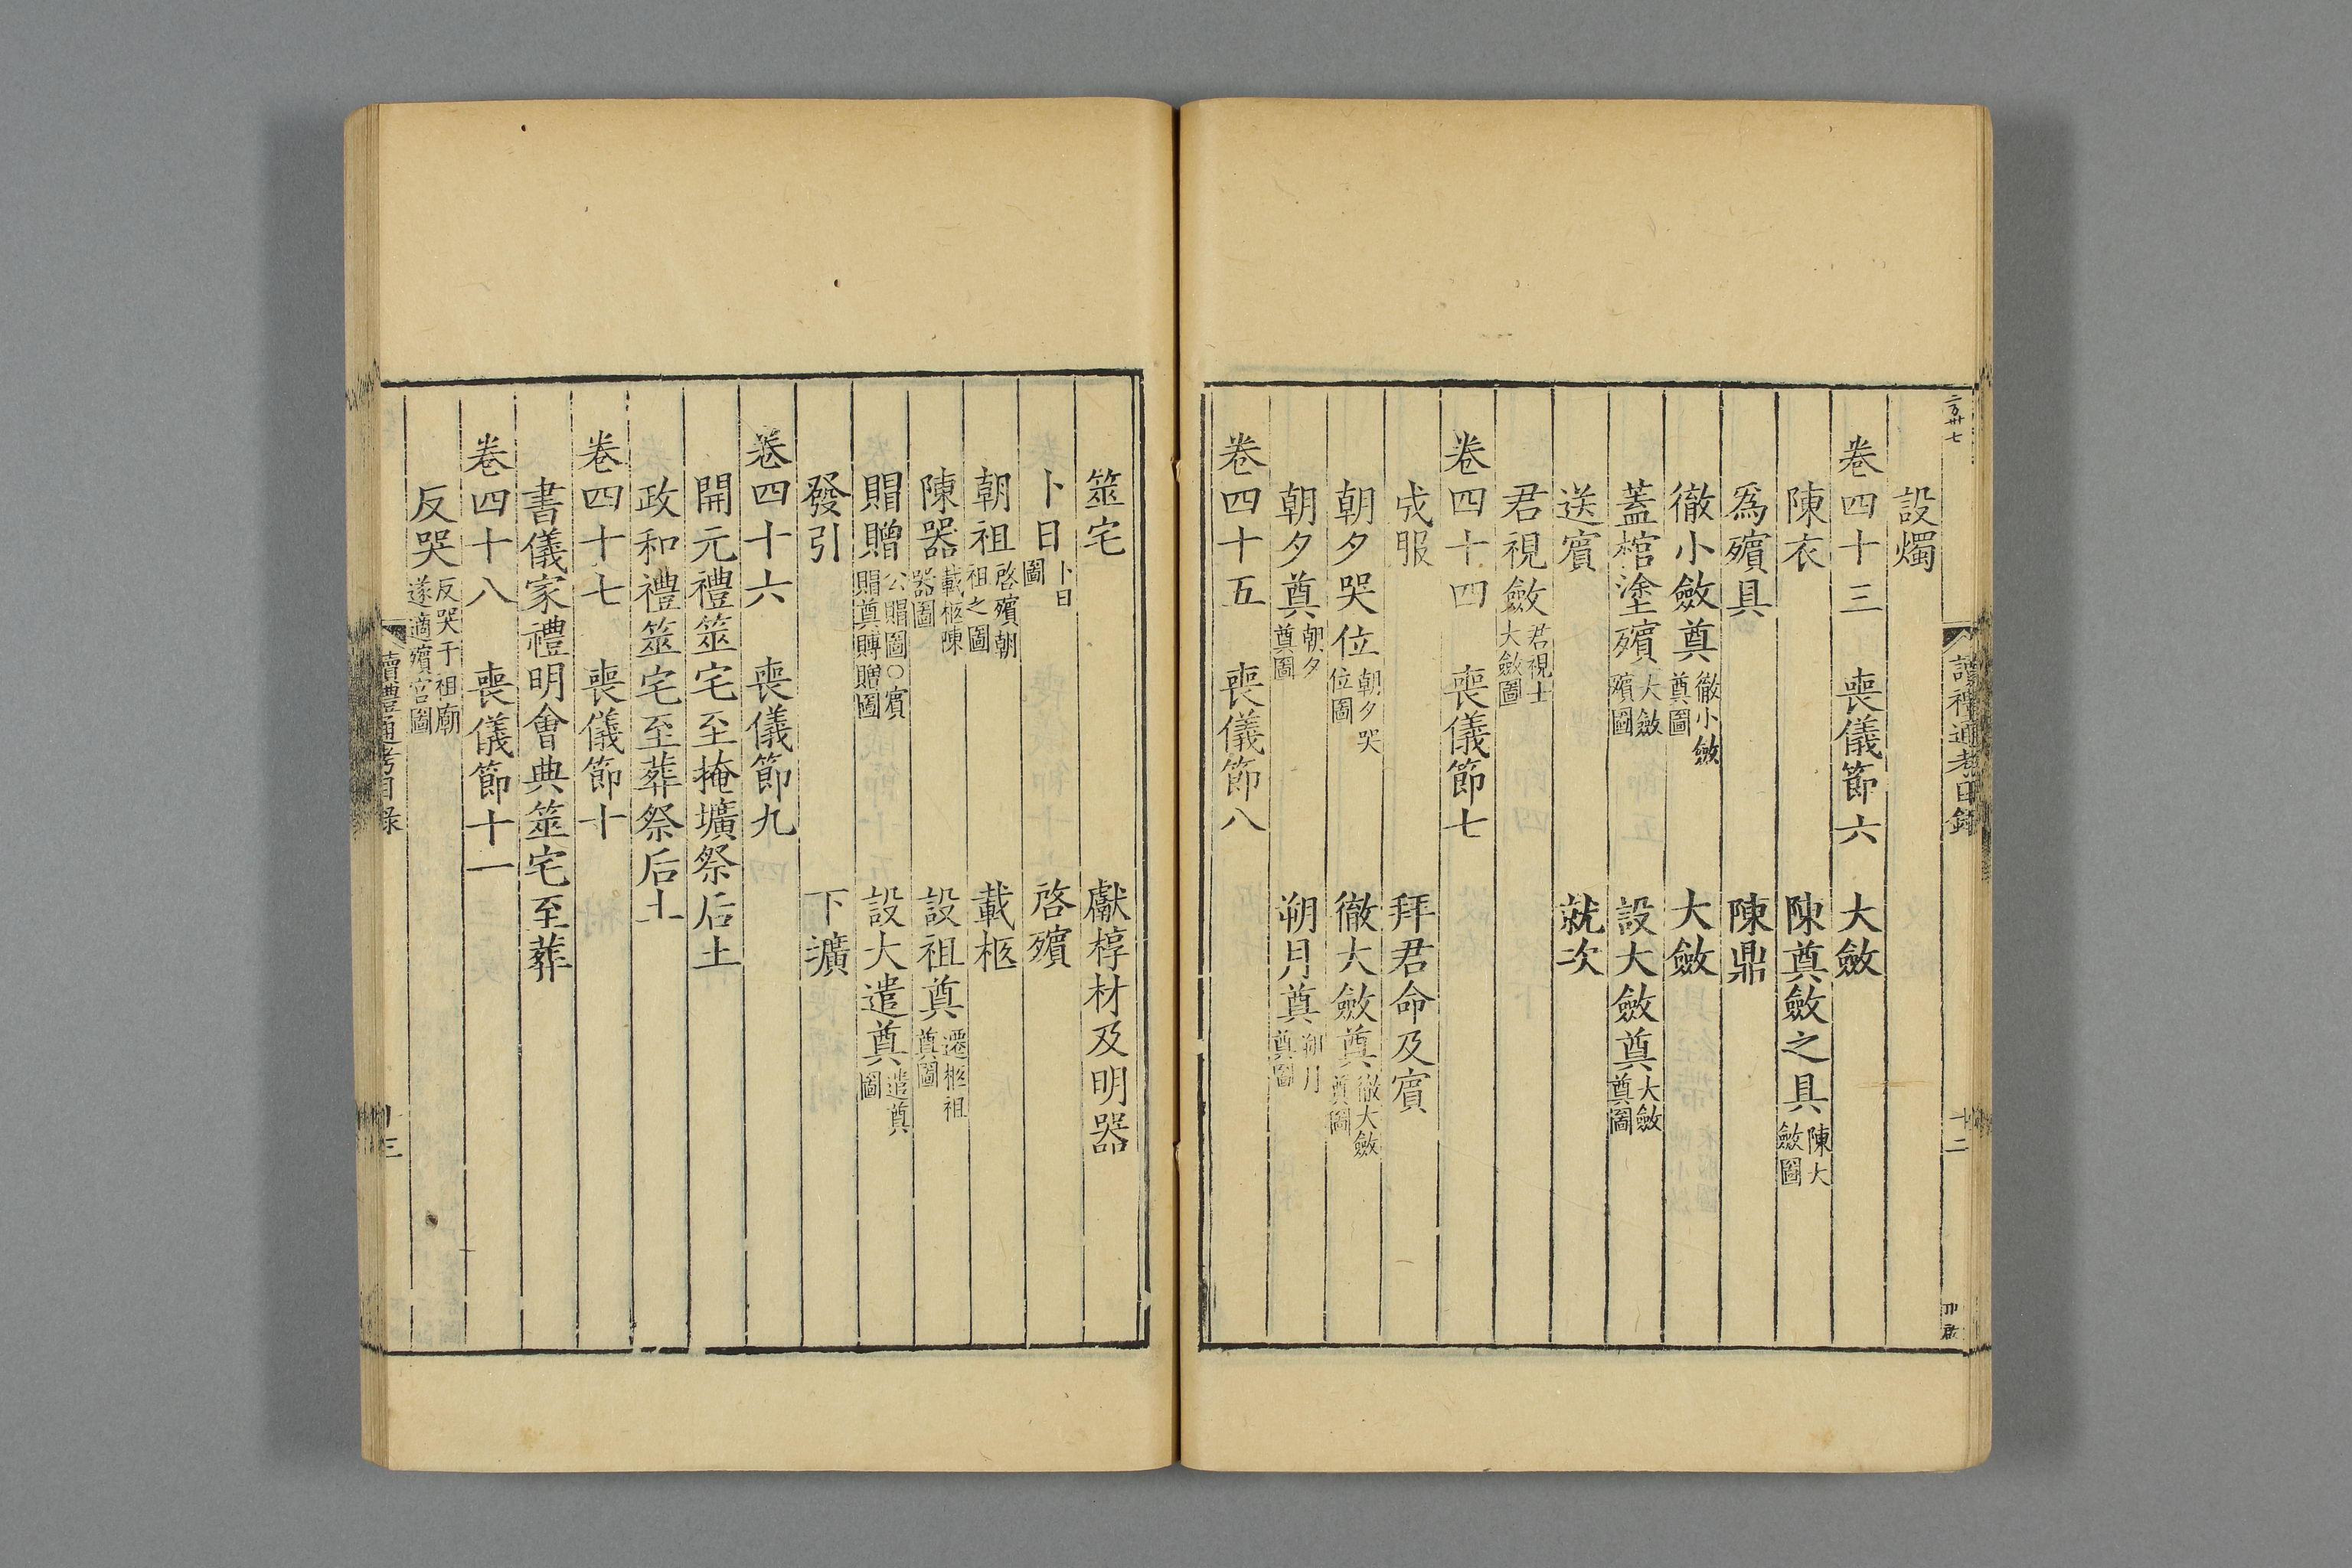 讀禮通考目錄 十二
設燭
卷四十三 喪儀節六 大斂
陳衣 陳奠斂之具 陳大斂圖
爲殯具 陳鼎
徹小斂奠 徹小斂奠圖 大斂
蓋棺塗殯 大斂殯圖 設大斂奠 大斂奠圖
送賓 就次
君視斂 君視士大斂圖
卷四十四 喪儀節七
成服 拜君命及賓
朝夕哭位 朝夕哭位圖 徹大斂奠 徹大斂奠圖
朝夕奠 朝夕奠圖 朔月奠 朔月奠圖
卷四十五 喪儀節八
筮宅 獻椁材及明器
卜日 卜日圖 啓殯
朝祖 啓殯朝祖之圖 載柩
陳器 載柩陳器圖 設祖奠 遷柩祖奠圖
賵贈 公賵圖○賓賵奠賻贈圖 設大遣奠 遣奠圖
發引 下壙
卷四十六 喪儀節九
開元禮筮宅至掩壙祭后土
政和禮筮宅至葬祭后土
卷四十七 喪儀節十
書儀家禮明會典筮宅至葬
卷四十八 喪儀節十一
反哭 反哭于祖廟遂適殯宮圖
讀禮通考目錄